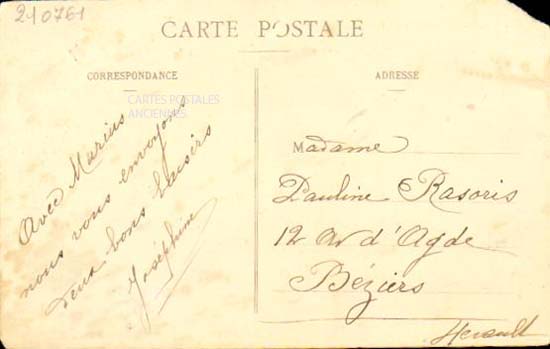 210761
CARTE POSTALE
CORRESPONDANCE
CARTES POSTALES
ANCIENNES
Avec Marius
nous vous envoyons
deux bons baisers
Joséphine
ADRESSE
Madame
Pauline Rasoris
12 Av d'Agde
Béziers
Herault